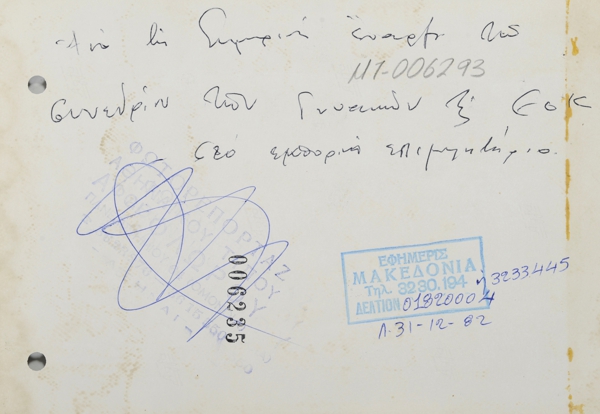 Από τη Σημερινή έναρξη του
ΜΤ-006293
συνεδρίου των Γυναικών της ΕΟΚ
στο εμπορικό επιμελητήριο.
ΦΩΤΟΡΕΠΟΡΤΑΖ
006235
ΕΦΗΜΕΡΙΣ
ΜΑΚΕΔΟΝΙΑ
Τηλ. 3230.194 ή 3233445
ΔΕΛΤΙΟΝ 01820004
Λ.31-12-82